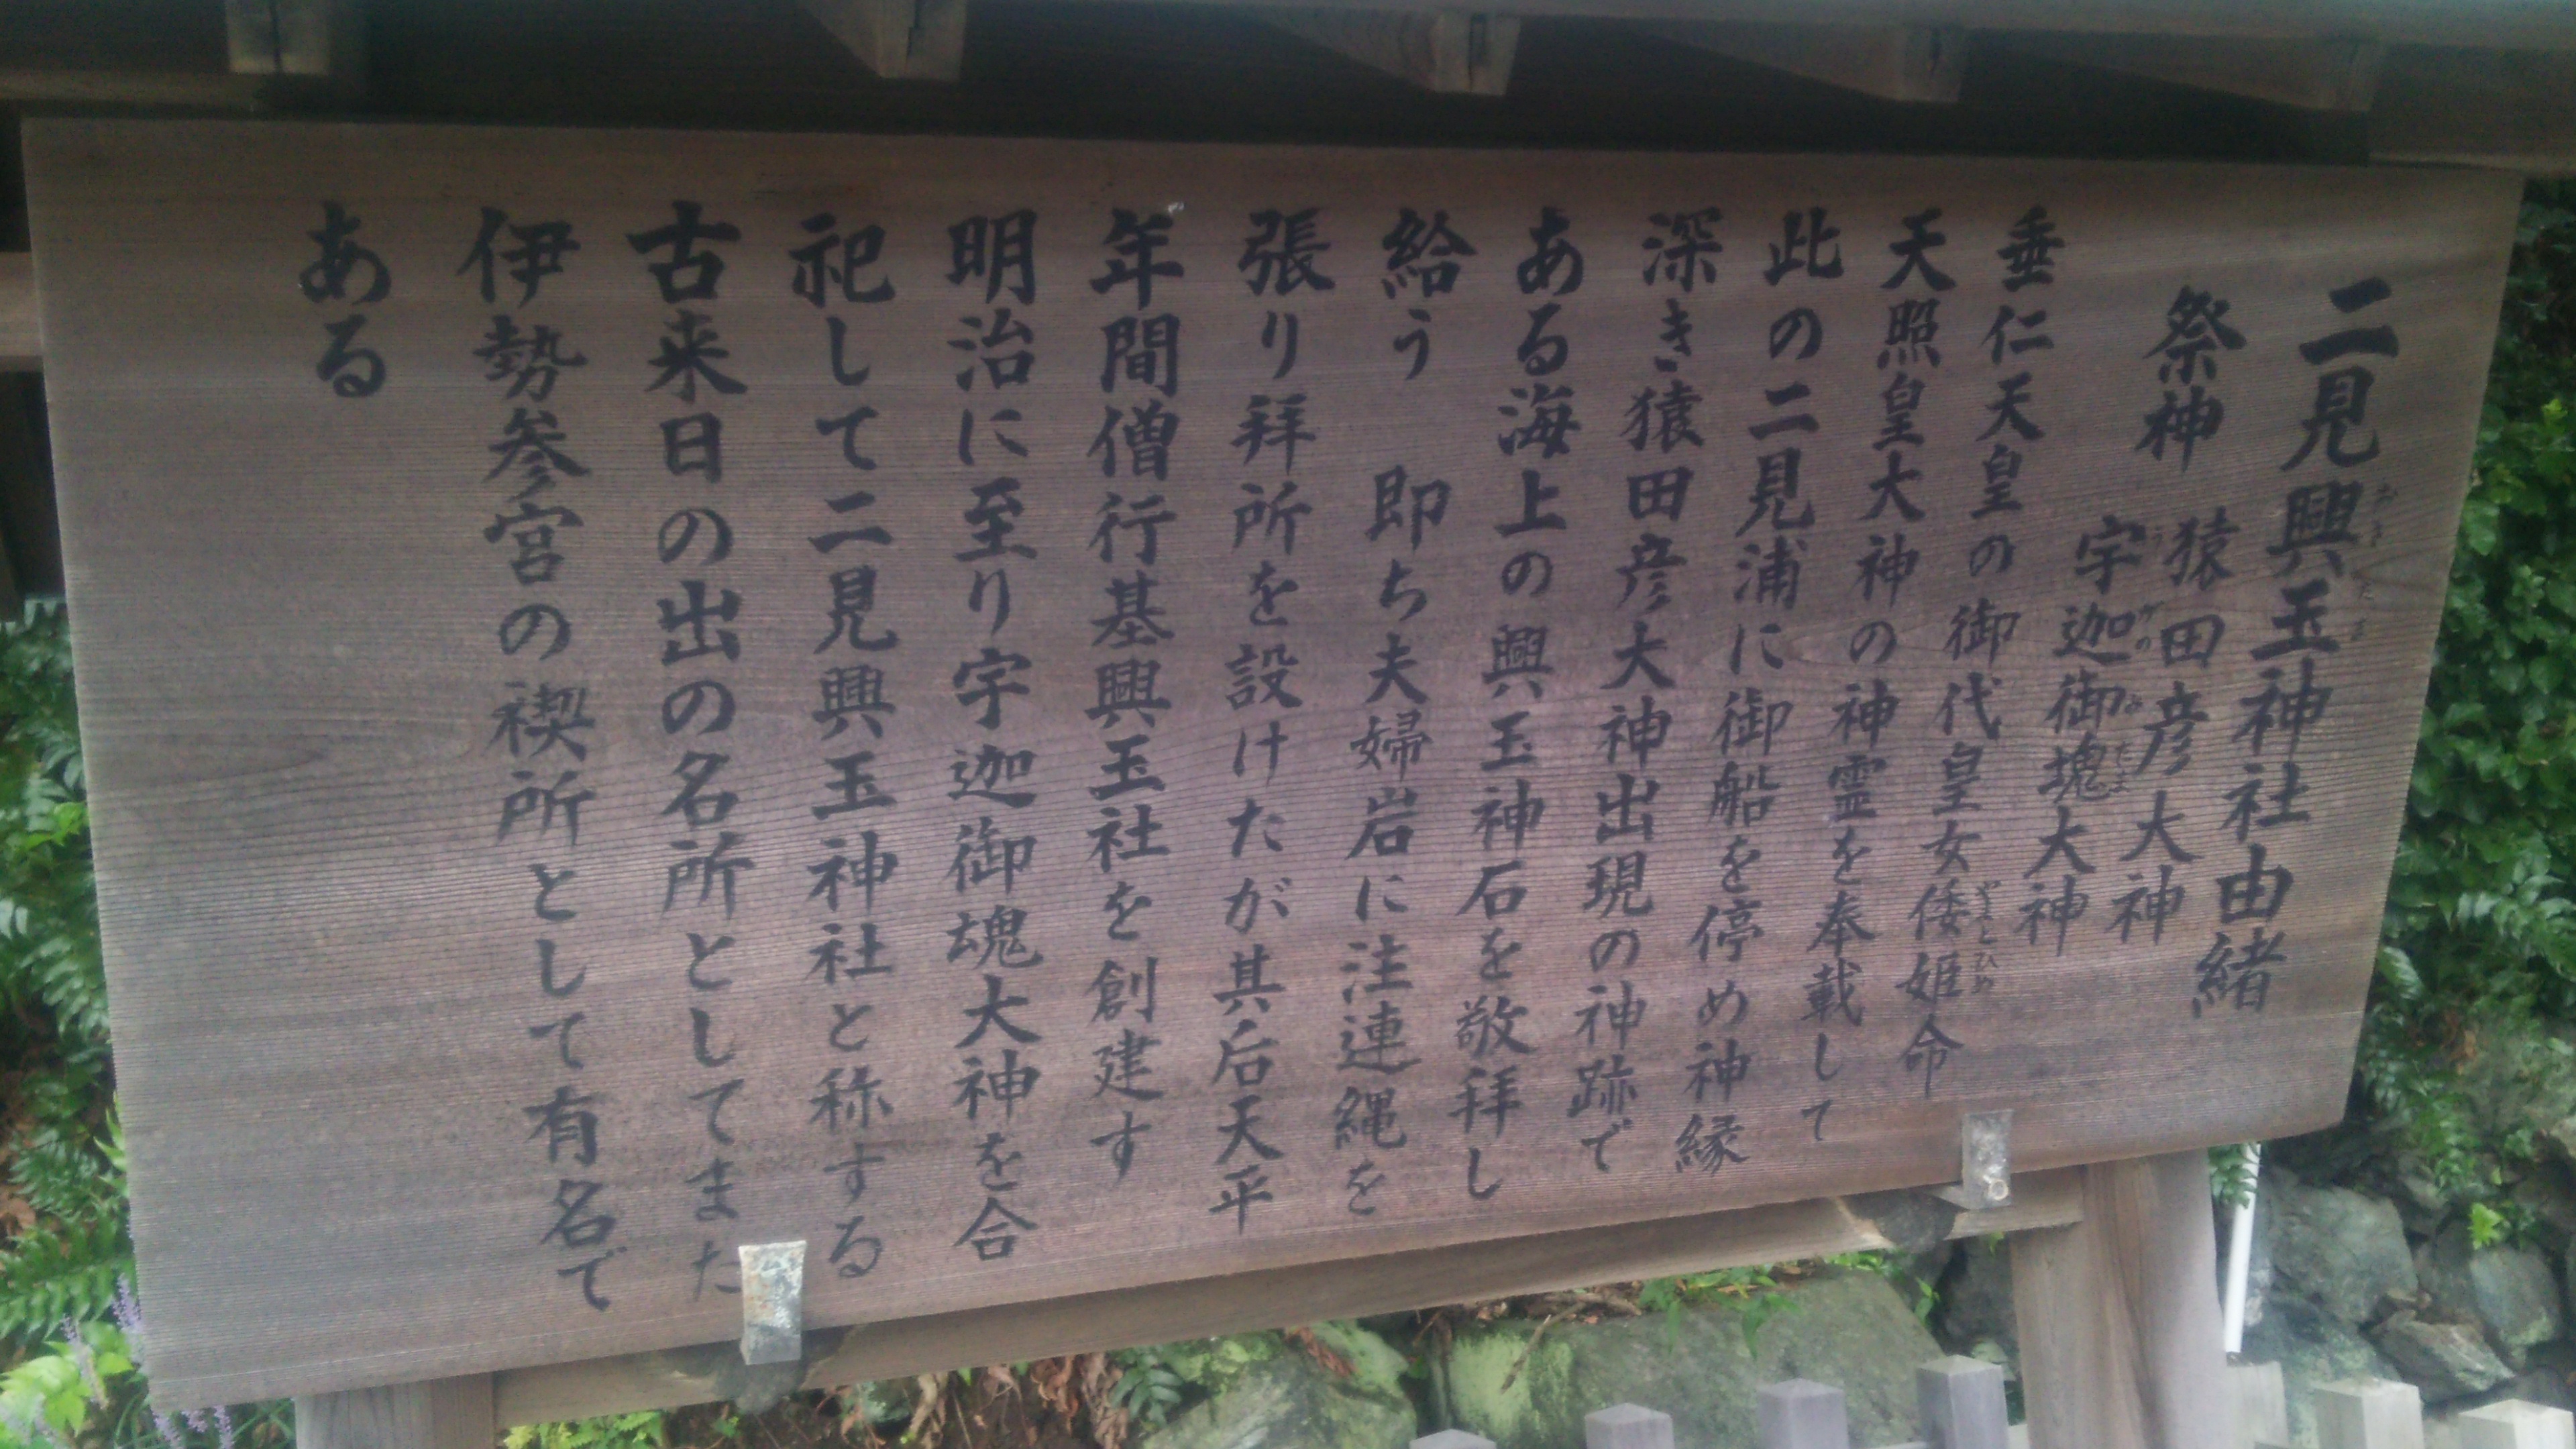 二見興玉神社由緒
おきたま
祭神 猿田彦大神
宇迦御魂大神
うがのみたま
垂仁天皇の御代皇女倭姫命
やまとひめ
天照皇大神の神霊を奉載して
此の二見浦に御船を停め神縁
深き猿田彦大神出現の神跡で
ある海上の興玉神石を敬拝し
給う 即ち夫婦岩に注連縄を
張り拜所を設けたが其后天平
年間僧行基興玉社を創建す
明治に至り宇迦御魂大神を合
祀して二見興玉神社と称する
古来日の出の名所としてまた
伊勢参宮の禊所として有名で
ある